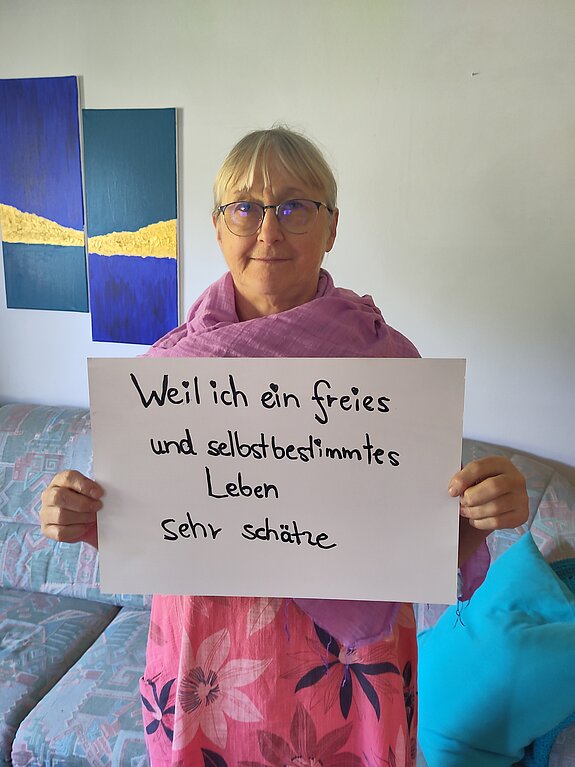 Weil ich ein freies
und selbstbestimmtes
Leben
sehr schätze